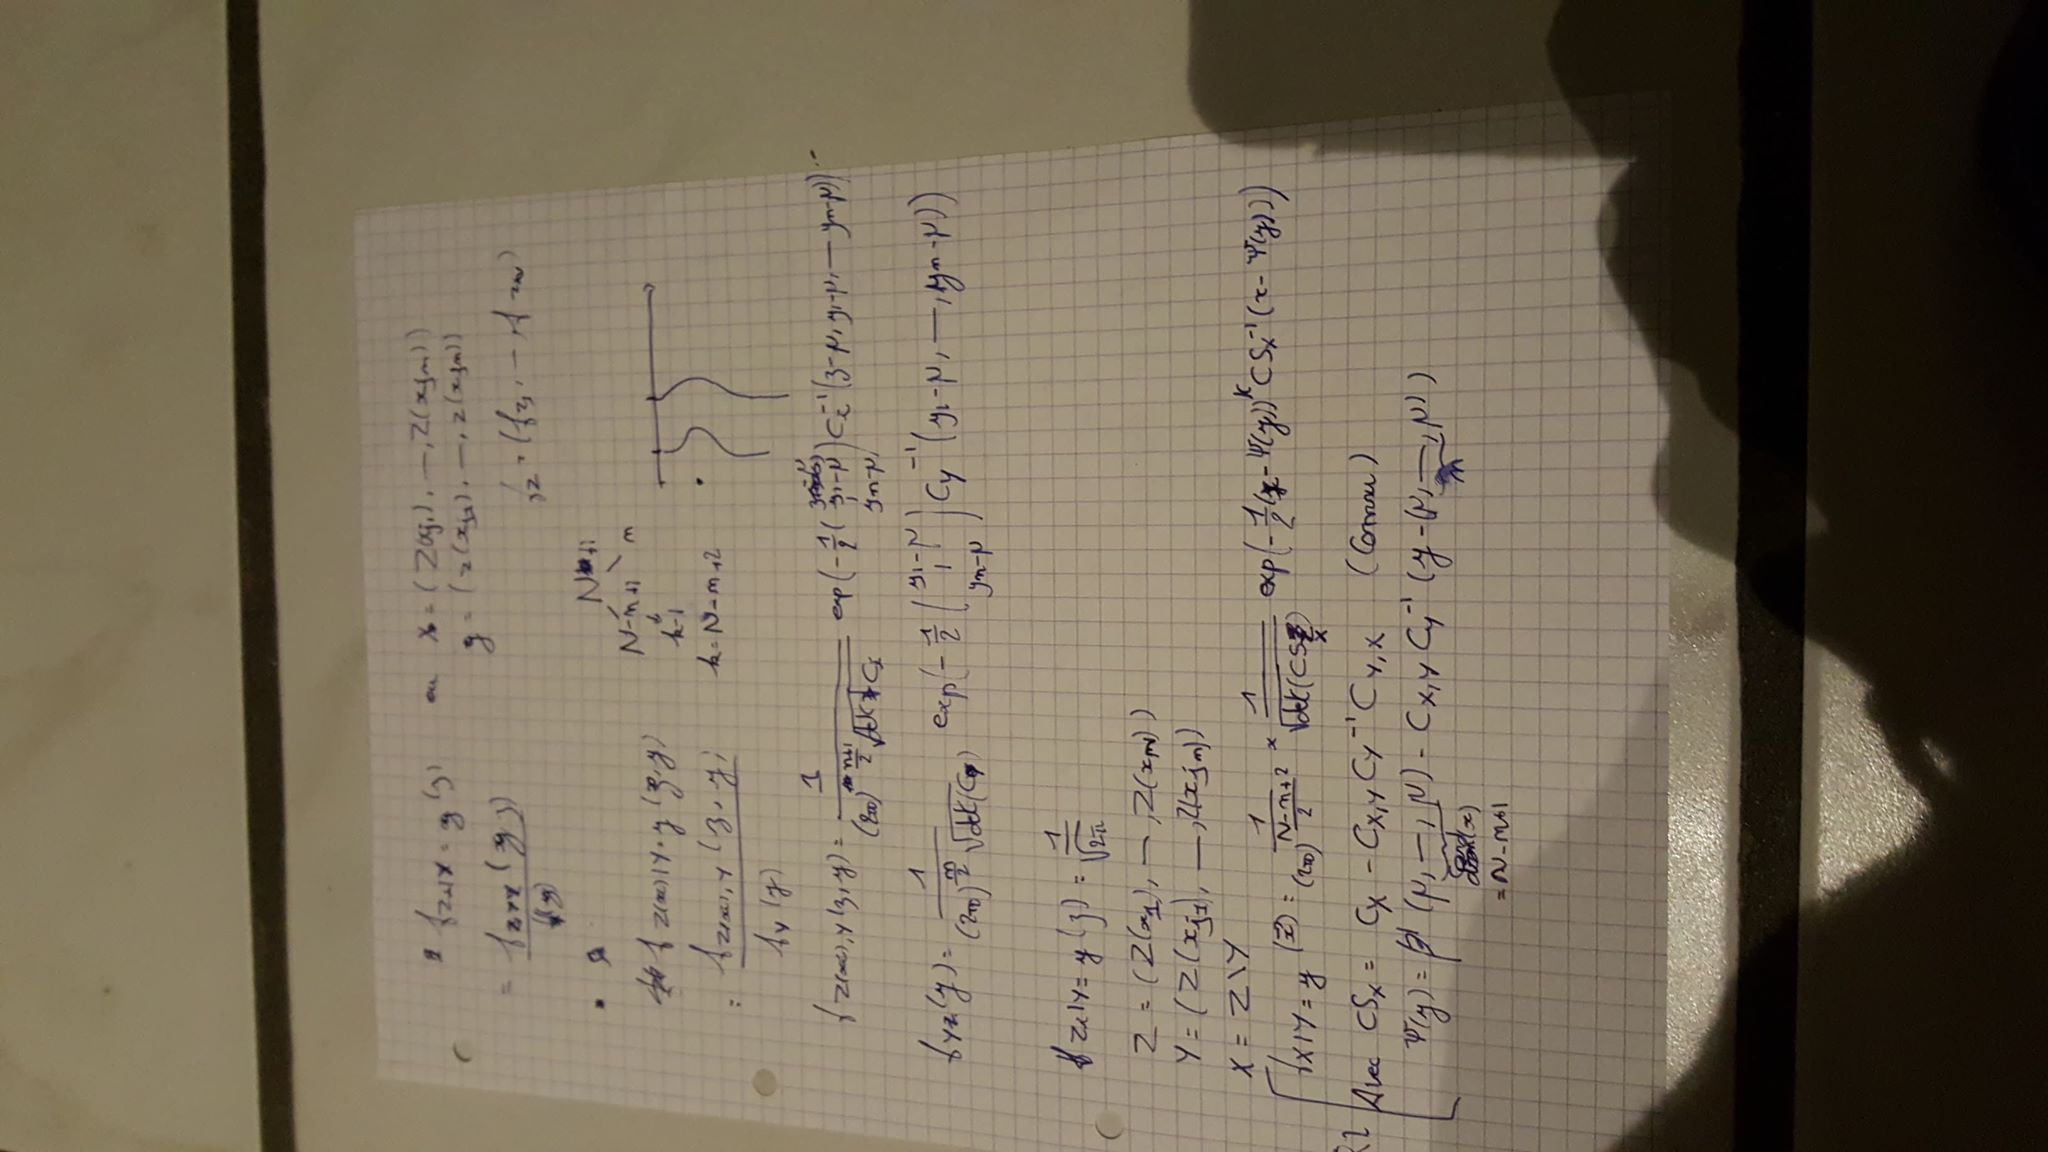 f_{Z|X=y}(z) ou X = (Z(xj1), —, Z(xjn))
y = (z(xj1), —, z(xjn))
f_Z = (f_{Z1}, —, f_{ZN})
N+1
N-n+1 n
k-1
k=N-n+2
f_{Z(x)|Y=y}(z,y)
= f_{Z(x),Y}(z,y) / f_Y(y)
f_{Z(x),Y}(z,y) = 1 / ((2π)^{(n+1)/2} √det C_z) exp(-1/2 (z-μ y1-μ | yn-μ) C_z^{-1} (z-μ, y1-μ, — yn-μ))
f_Y(y) = 1 / ((2π)^{n/2} √det(C_Y)) exp(-1/2 (y1-μ | yn-μ) C_Y^{-1} (y1-μ, —, yn-μ))
f_{Zx|Y=y}(z) = 1 / √2π
Z = (Z(x1), —, Z(xN))
Y = (Z(xj1), —, Z(xjn))
X = Z\Y
f_{X|Y=y}(x) = 1 / (2π)^{(N-n+2)/2} × 1 / √det(CS_X) exp(-1/2 (x-Ψ(y))^t CS_X^{-1} (x-Ψ(y)))
Avec CS_X = C_X - C_{X,Y} C_Y^{-1} C_{Y,X} (Connu)
Ψ(y) = (μ, —, μ) - C_{X,Y} C_Y^{-1} (y-(μ, —, μ))
n
= N-n+1